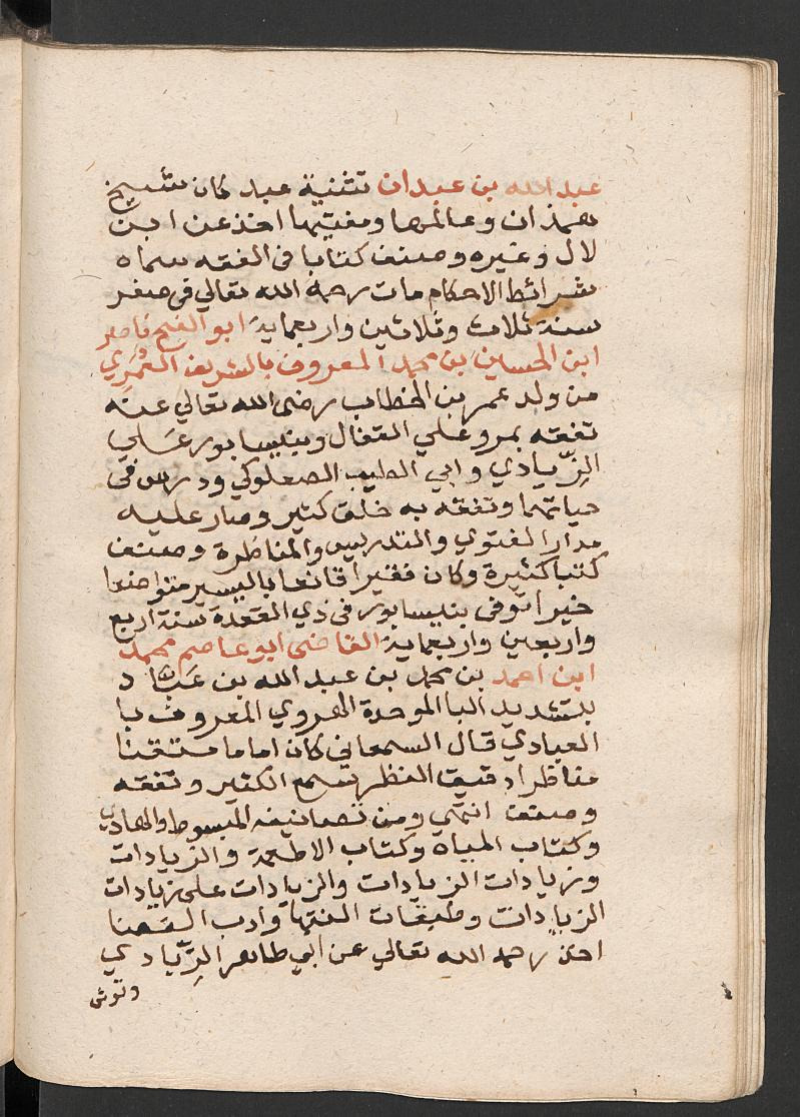 عبد الله بن عبدان تثنية عبد كان شيخ
همذان وعالمها ومفتيها اخذ عن ابن
لال وغيره وصنف كتابا في الفقه سماه
شرائط الاحكام مات رحمه الله تعالي في صفر
سنة ثلاث وثلاثين واربعماية ابو الفتح ناصر
ابن الحسين بن محمد المعروف بالشريف العُمَري
من ولد عمر بن الخطاب رضى الله تعالي عنه
تفقه بمرو علي القفال وبنيسابور عَلي
الزِّيادي وابي الطيب الصعلوكي ودرس في
حياتهما وتفقه به خلق كثير وصار عليه
مدار الفتوي والتدريس والمناظرة وصنف
كتبا كثيرة وكان فقيرا قانعا باليسير متواضعا
خيرا توفى بنيسابور في ذي القعدة سنة اربع
واربعين واربعماية القاضى ابو عاصم محمد
ابن احمد بن محمد بن عبد الله بن عَبّا د
بتشديد البا الموحدة الهروي المعروف با
العبادي قال السمعاني كان اماما متقنا
مناظرا دقيق النظر سمع الكثير وتفقه
وصنف انتهي ومن تصانيفه المبسوط والهادي
وكتاب المياه وكتاب الاطعمة والزيادات
وزيادات الزيادات والزيادات على زيادات
الزيادات وطبقات الفقها وادب القضا
اخذ رحمه الله تعالي عن ابي طاهر الزِّيادي
وتوفى